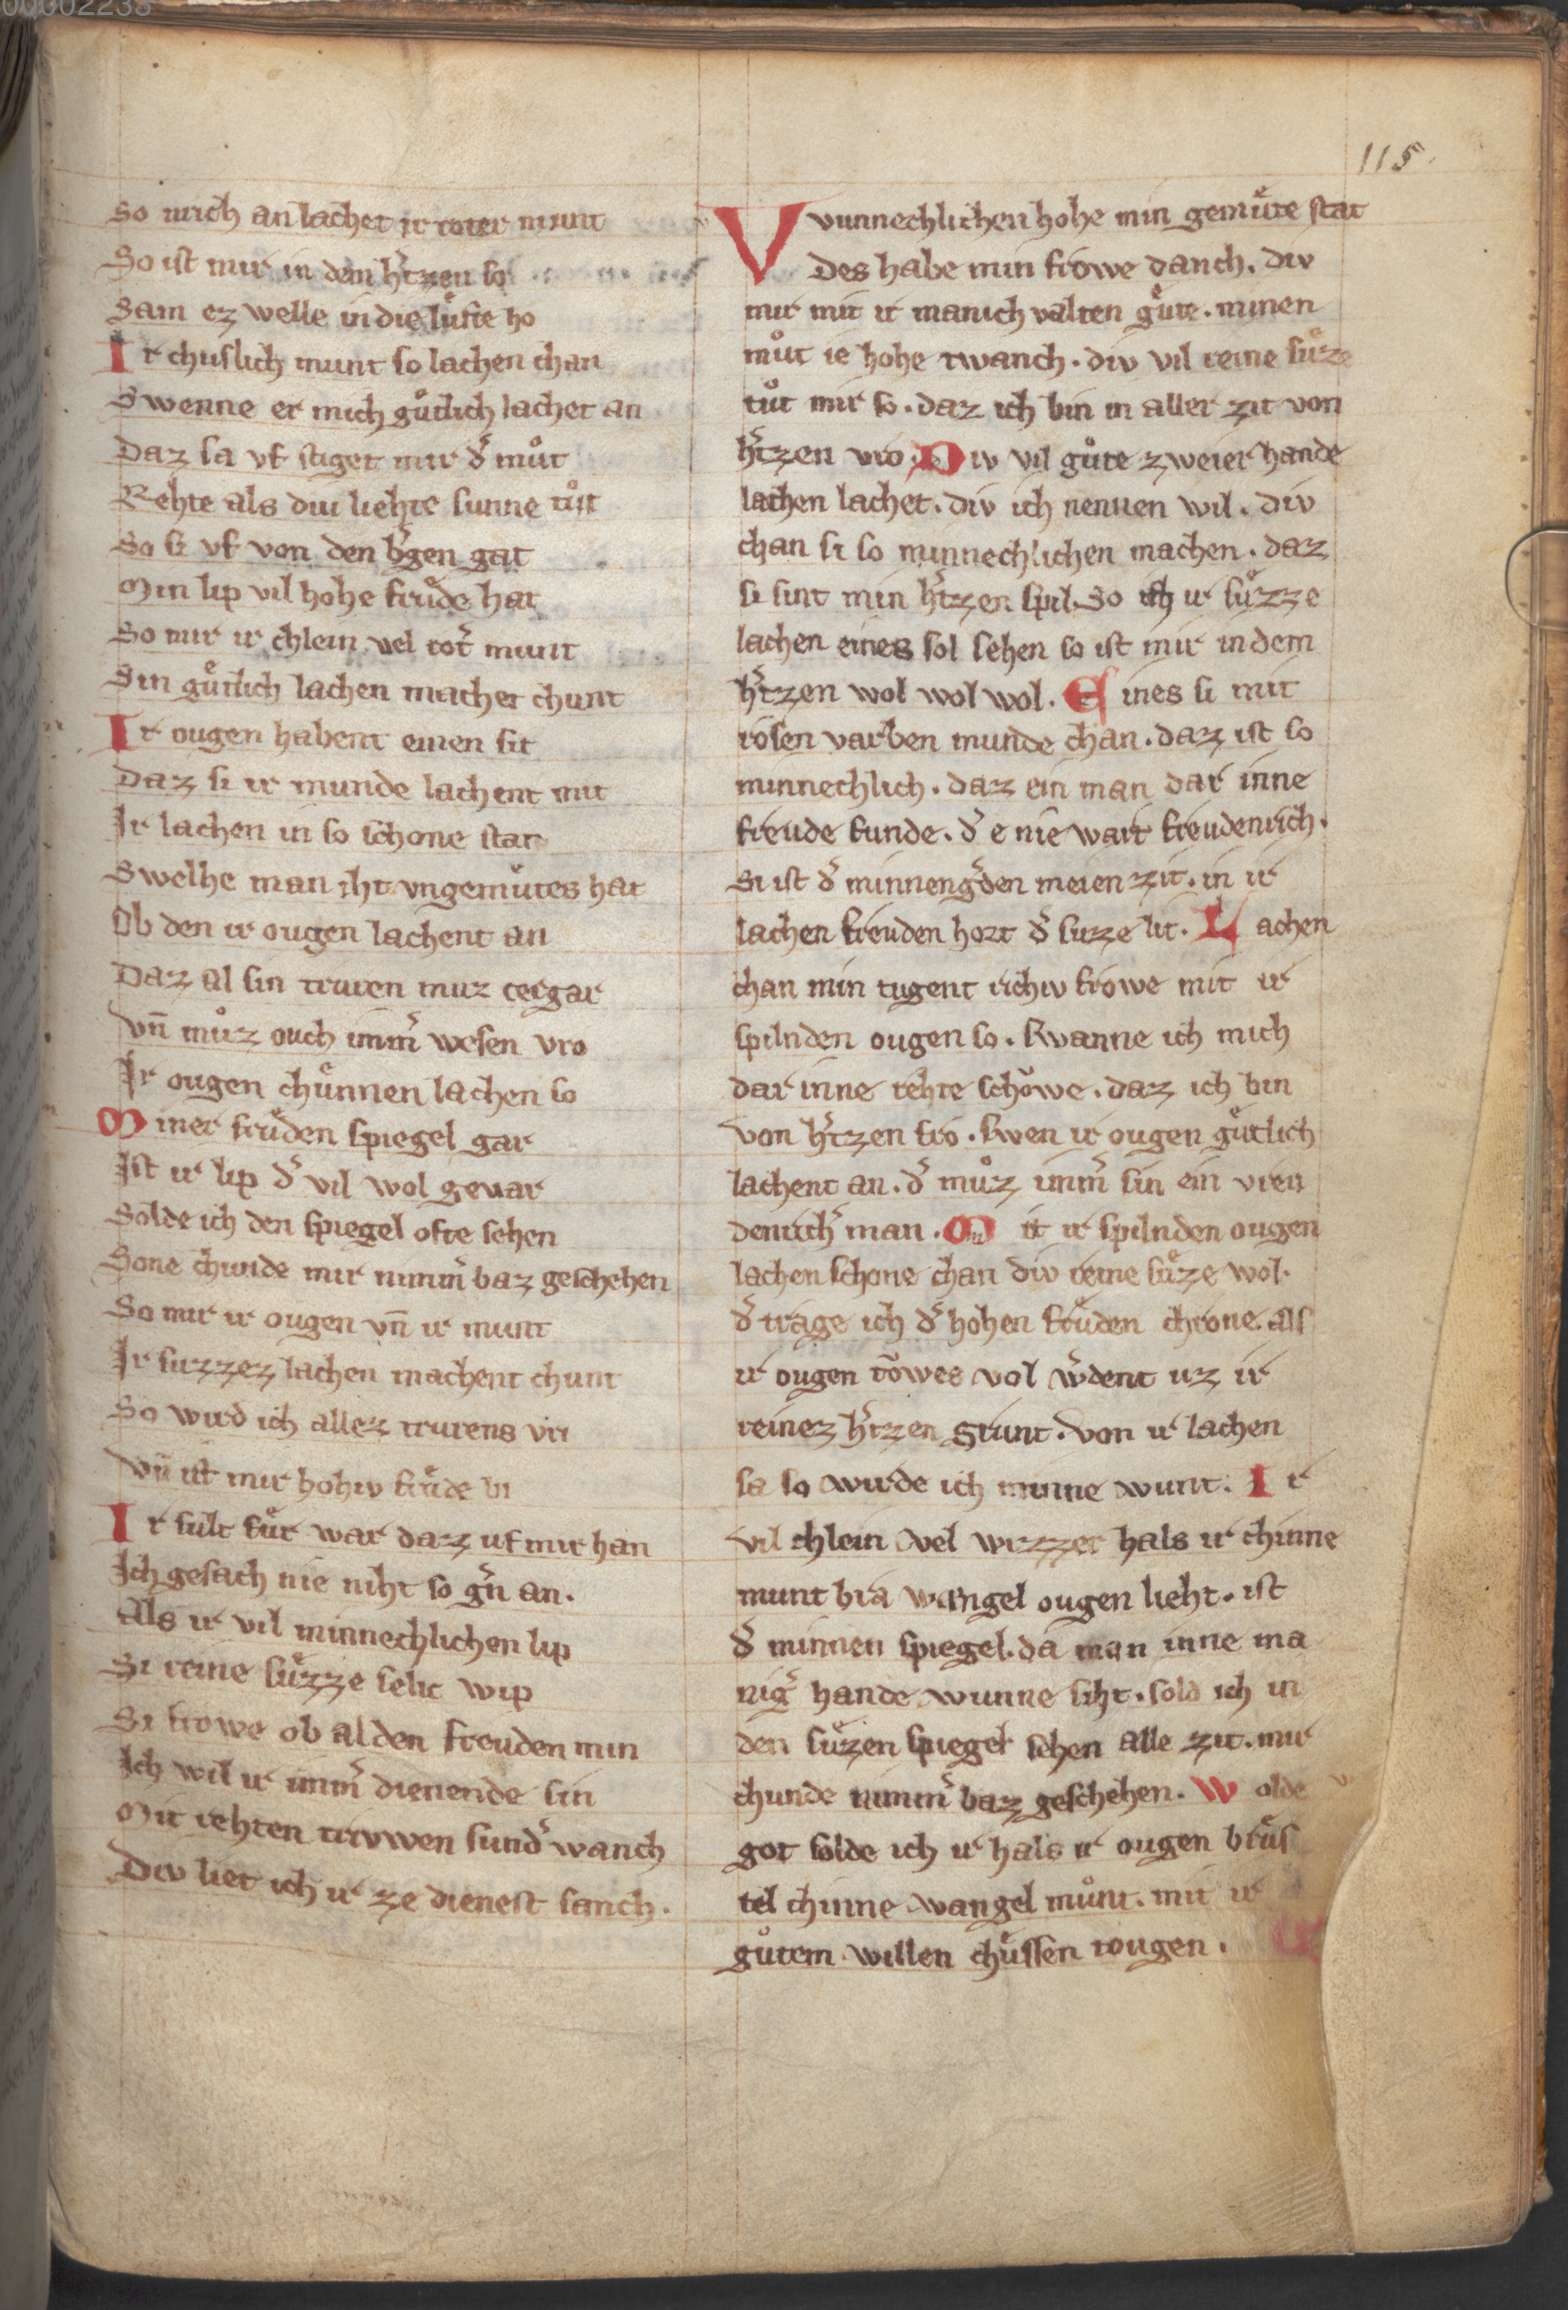 00002233
115.
So mich an lachet ir roter munt
So ist mir in dem h͛tzen so
Sam ez welle in die lüfte ho
Ir chuslich munt so lachen chan
Swenne er mich guͤtlich lachet an
Daz sa vf stiget mir d͛ muͦt
Rehte als diu liehte sunne tuͦt
So si vf von den b͛gen gat
Min lip vil hohe frude hat
So mir ir chlein vel rot͛ munt
Sin guͤtlich lachen machet chunt
Ir ougen habent einen sit
Daz si ir munde lachent mit
Ir lachen in so schone stat
Swelhe man iht vngemuͤtes hat
Ob den ir ougen lachent an
Daz al sin truren muz cergat
Vn̄ muͦz ouch imm͛ wesen vro
Ir ougen chuͤnnen lachen so
Miner fruͤden spiegel gar
Ist ir lip d͛ vil wol gevar
Solde ich den spiegel ofte sehen
Sone chunde mir nimm͛ baz geschehen
So mir ir ougen vn̄ ir munt
Ir suzzez lachen machent chunt
So wird ich allez trurens vri
Vn̄ ist mir hohiv fruͤde bi
Ir sult fuͤr war daz uf mir han
Ich gesach nie niht so g͛n an.
Als ir vil minnechlichen lip
Si reine suͤzze selic wip
Si frowe ob al den freuden min
Ich wil ir imm͛ dienende sin
Mit rehten triwen sund͛ wanch
Div liet ich ir ze dienest sanch.
Vvunnechlichen hohe min gemuͤte stat
Des habe min frowe danch. div
mir mit ir manichvalten guͤte. minen
muͦt ie hohe twanch. div vil reine suͤze
tuͦt mir so. daz ich bin in aller zit von
h͛tzen vro. Div vil guͦte zweier hande
lachen lachet. div ich nennen wil. div
chan si so minnechlichen machen. daz
si sint min h͛tzen spil. So ich ir suͤzze
lachen eines sol sehen so ist mir in dem
h͛tzen wol wol wol. Eines si mit
rosen varben munde chan. daz ist so
minnechlich. daz ein man dar inne
freude funde. d͛ e nie wart freudenrich.
Si ist d͛ minneng͛den meien zit. in ir
lachen freuden hort d͛ suzze lit. Lachen
chan min tugent richiv frowe mit ir
spilnden ougen so. swanne ich mich
dar inne rehte schowe. daz ich bin
von h͛tzen fro. swen ir ougen guͤtlich
lachent an. d͛ muͦz imm͛ sin ein vreu
denrich͛ man. Mit ir spilnden ougen
lachen schone chan div reine suͤze wol.
d͛ trage ich d͛ hohen fruͤden chrone. als
ir ougen towes vol w͛dent uz ir
reinez h͛tzen grunt. von ir lachen
sa so wirde ich minne wunt. Ir
vil chlein vel wizzer hals ir chinne
munt bra wangel ougen lieht. ist
d͛ minnen spiegel. da man inne ma
nig͛ hande wunne siht. sold ich in
den suͤzen spiegel sehen alle zit. mir
chunde nimm͛ baz geschehen. Wolde
got solde ich ir hals ir ougen bruͤs
tel chinne wangel munt. mit ir
guͦtem willen chuͤssen tougen.